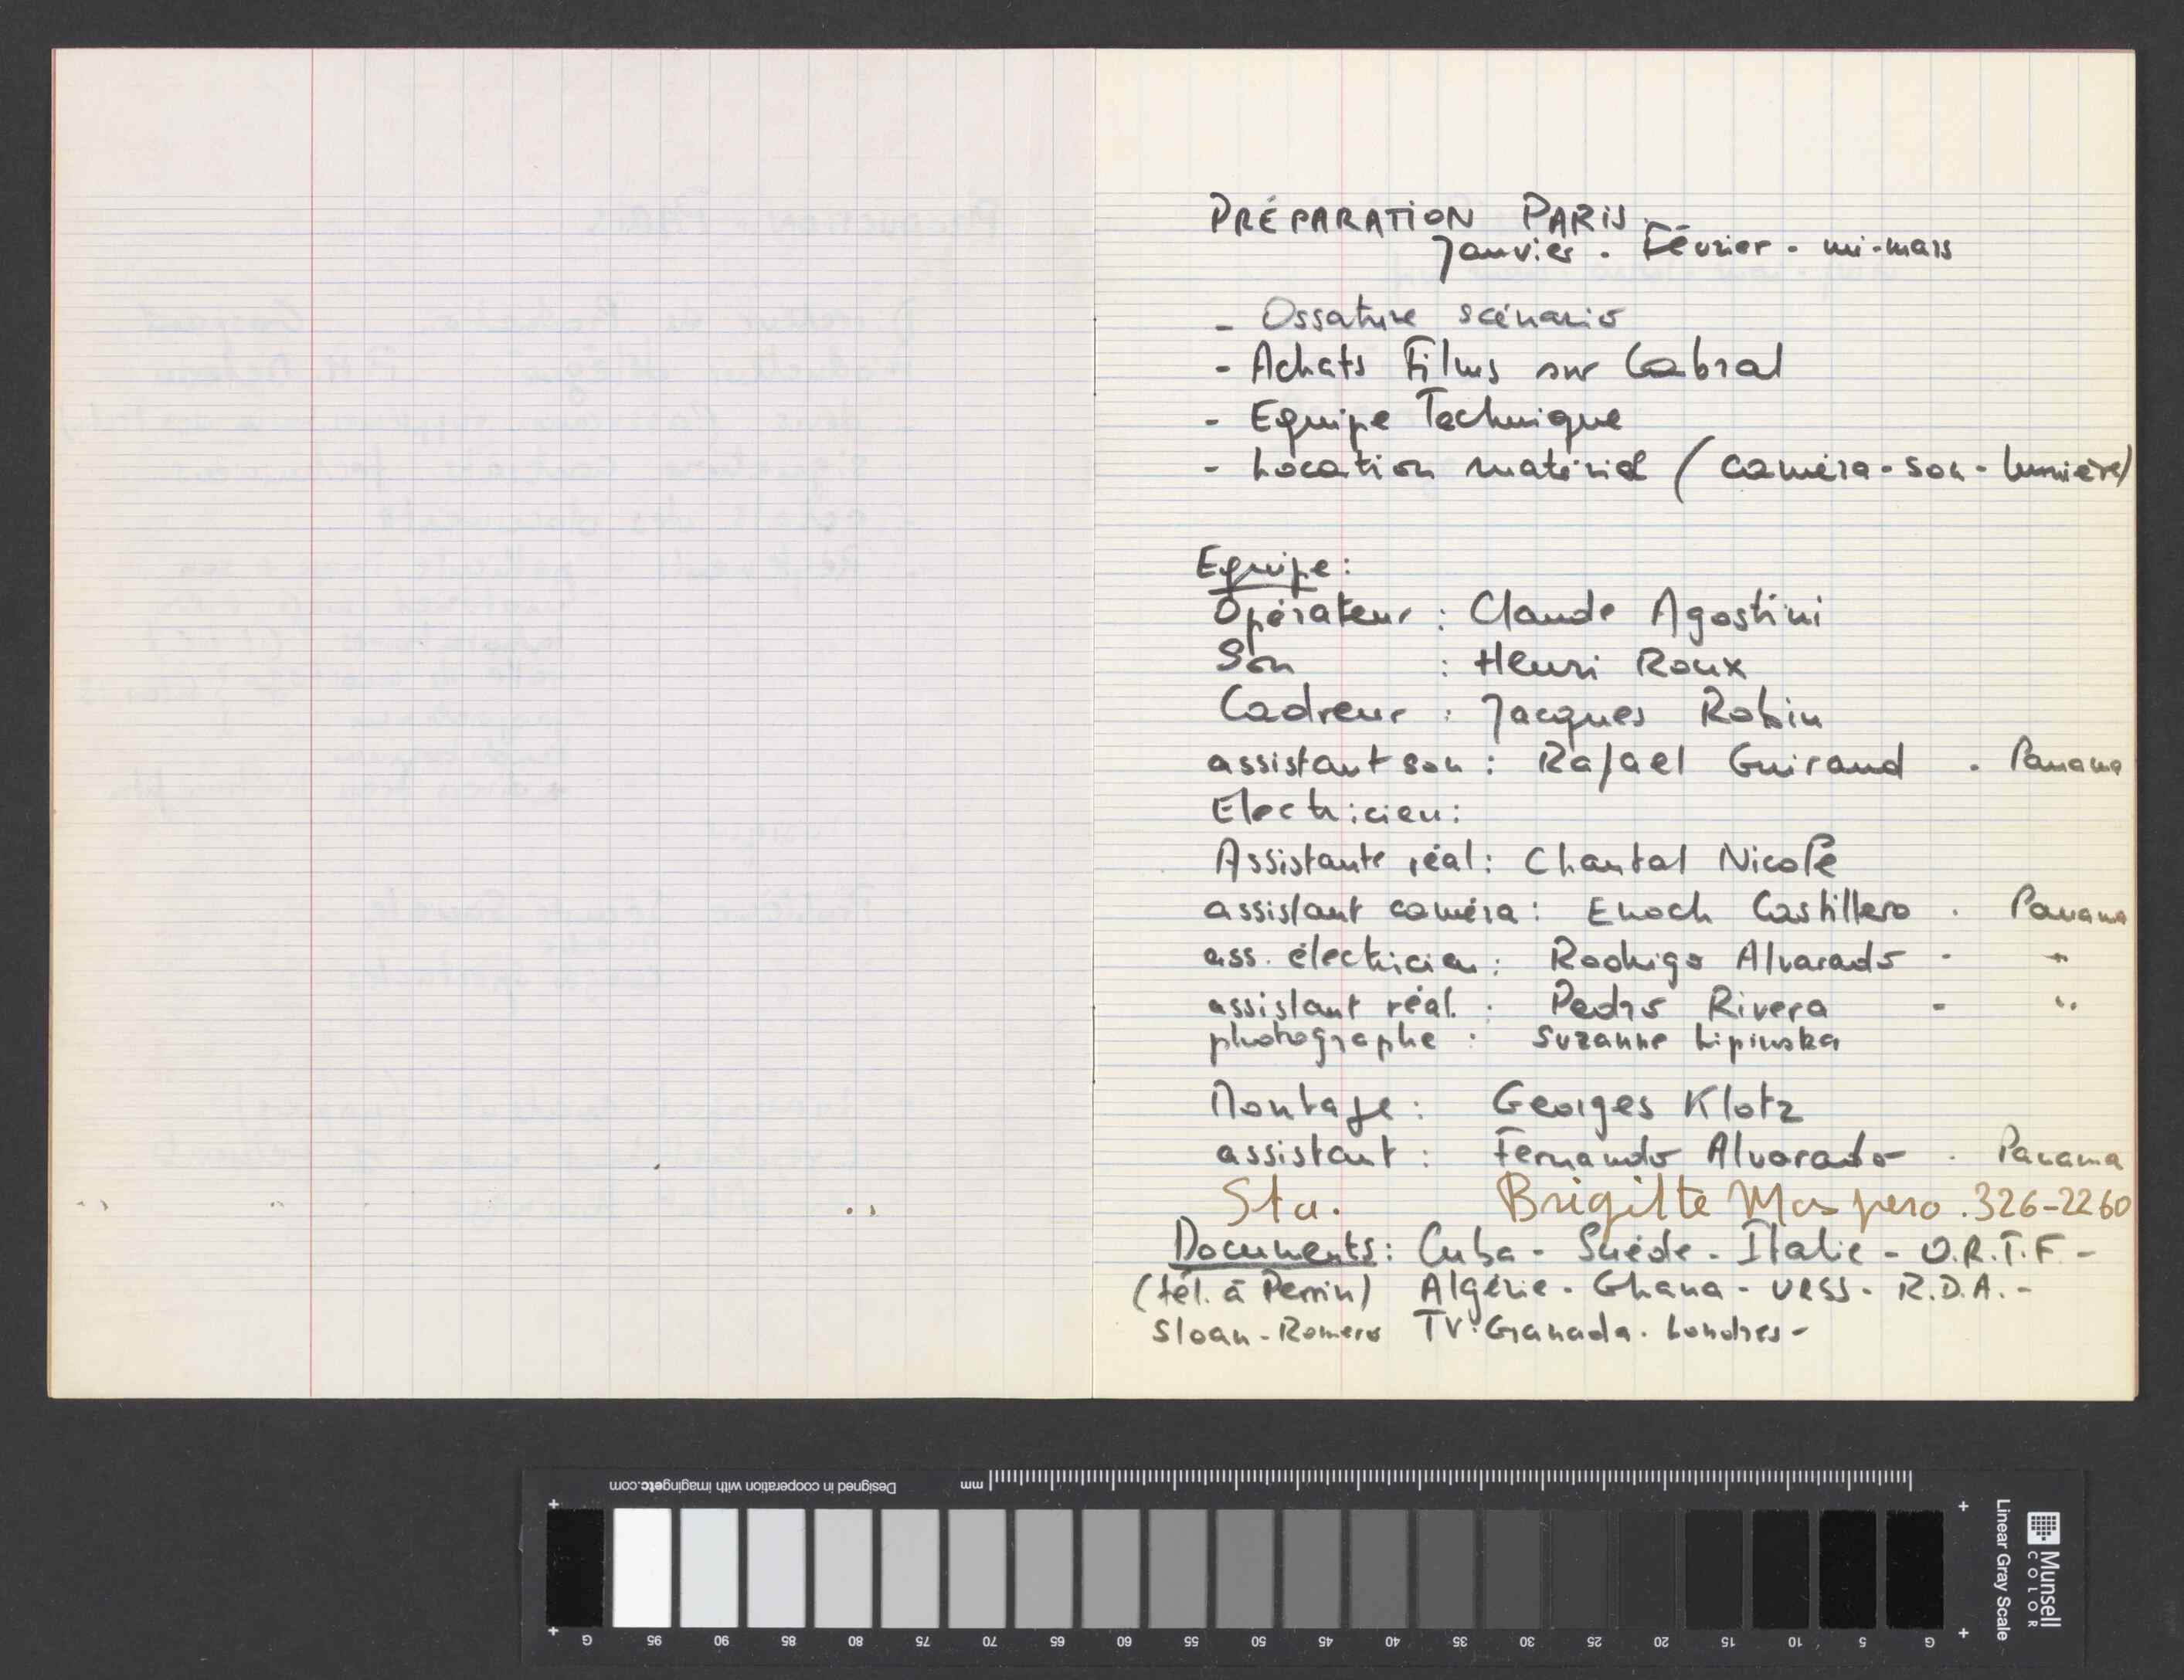 PRÉPARATION PARIS.
Janvier. Février. mi-mars
- Ossature scénario
- Achats Films sur Cabral
- Equipe Technique
- Location matériel (caméra-son-lumière)
Equipe:
Opérateur : Claude Agostini
Son : Henri Roux
Cadreur : Jacques Robin
assistant son : Rafael Guiraud . Panama
Electricien:
Assistante réal: Chantal Nicole
assistant caméra : Enoch Castillero . Panama
ass. électricien: Rodrigo Alvarado - "
assistant réal. : Pedro Rivera - "
photographe : Suzanne Lipinska
Montage : Georges Klotz
assistant : Fernando Alvarado . Panama
Sta. Brigitte Maspero. 326-2260
Documents: Cuba - Suède - Italie - O.R.T.F. -
(tél. à Perrin) Algérie - Ghana - URSS - R.D.A. -
Sloan - Romero TV. Granada. Londres -
Designed in cooperation with imagingetc.com
mm
G 95 90 85 80 75 70 65 60 55 50 45 40 35 30 25 20 15 10 5 G
Linear Gray Scale
Munsell
COLOR